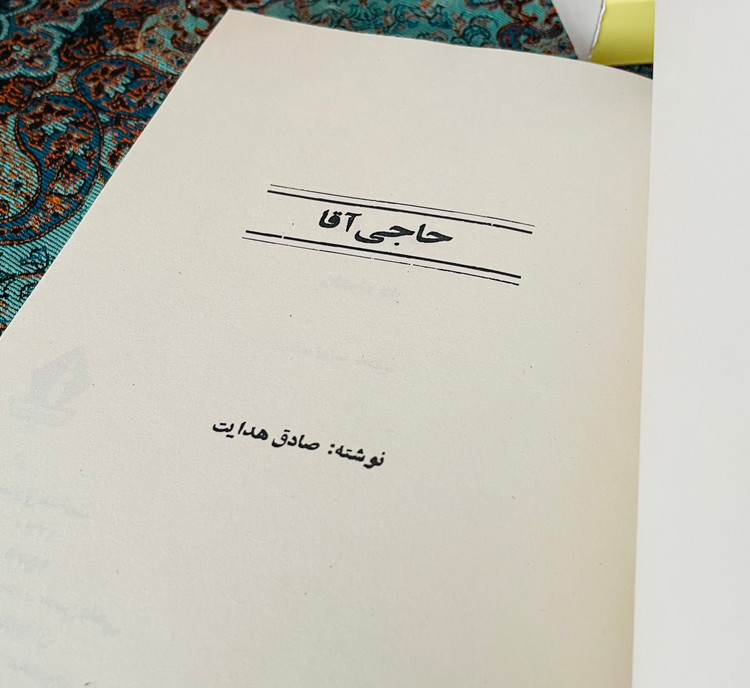 حاجی‌آقا
نوشته: صادق هدایت